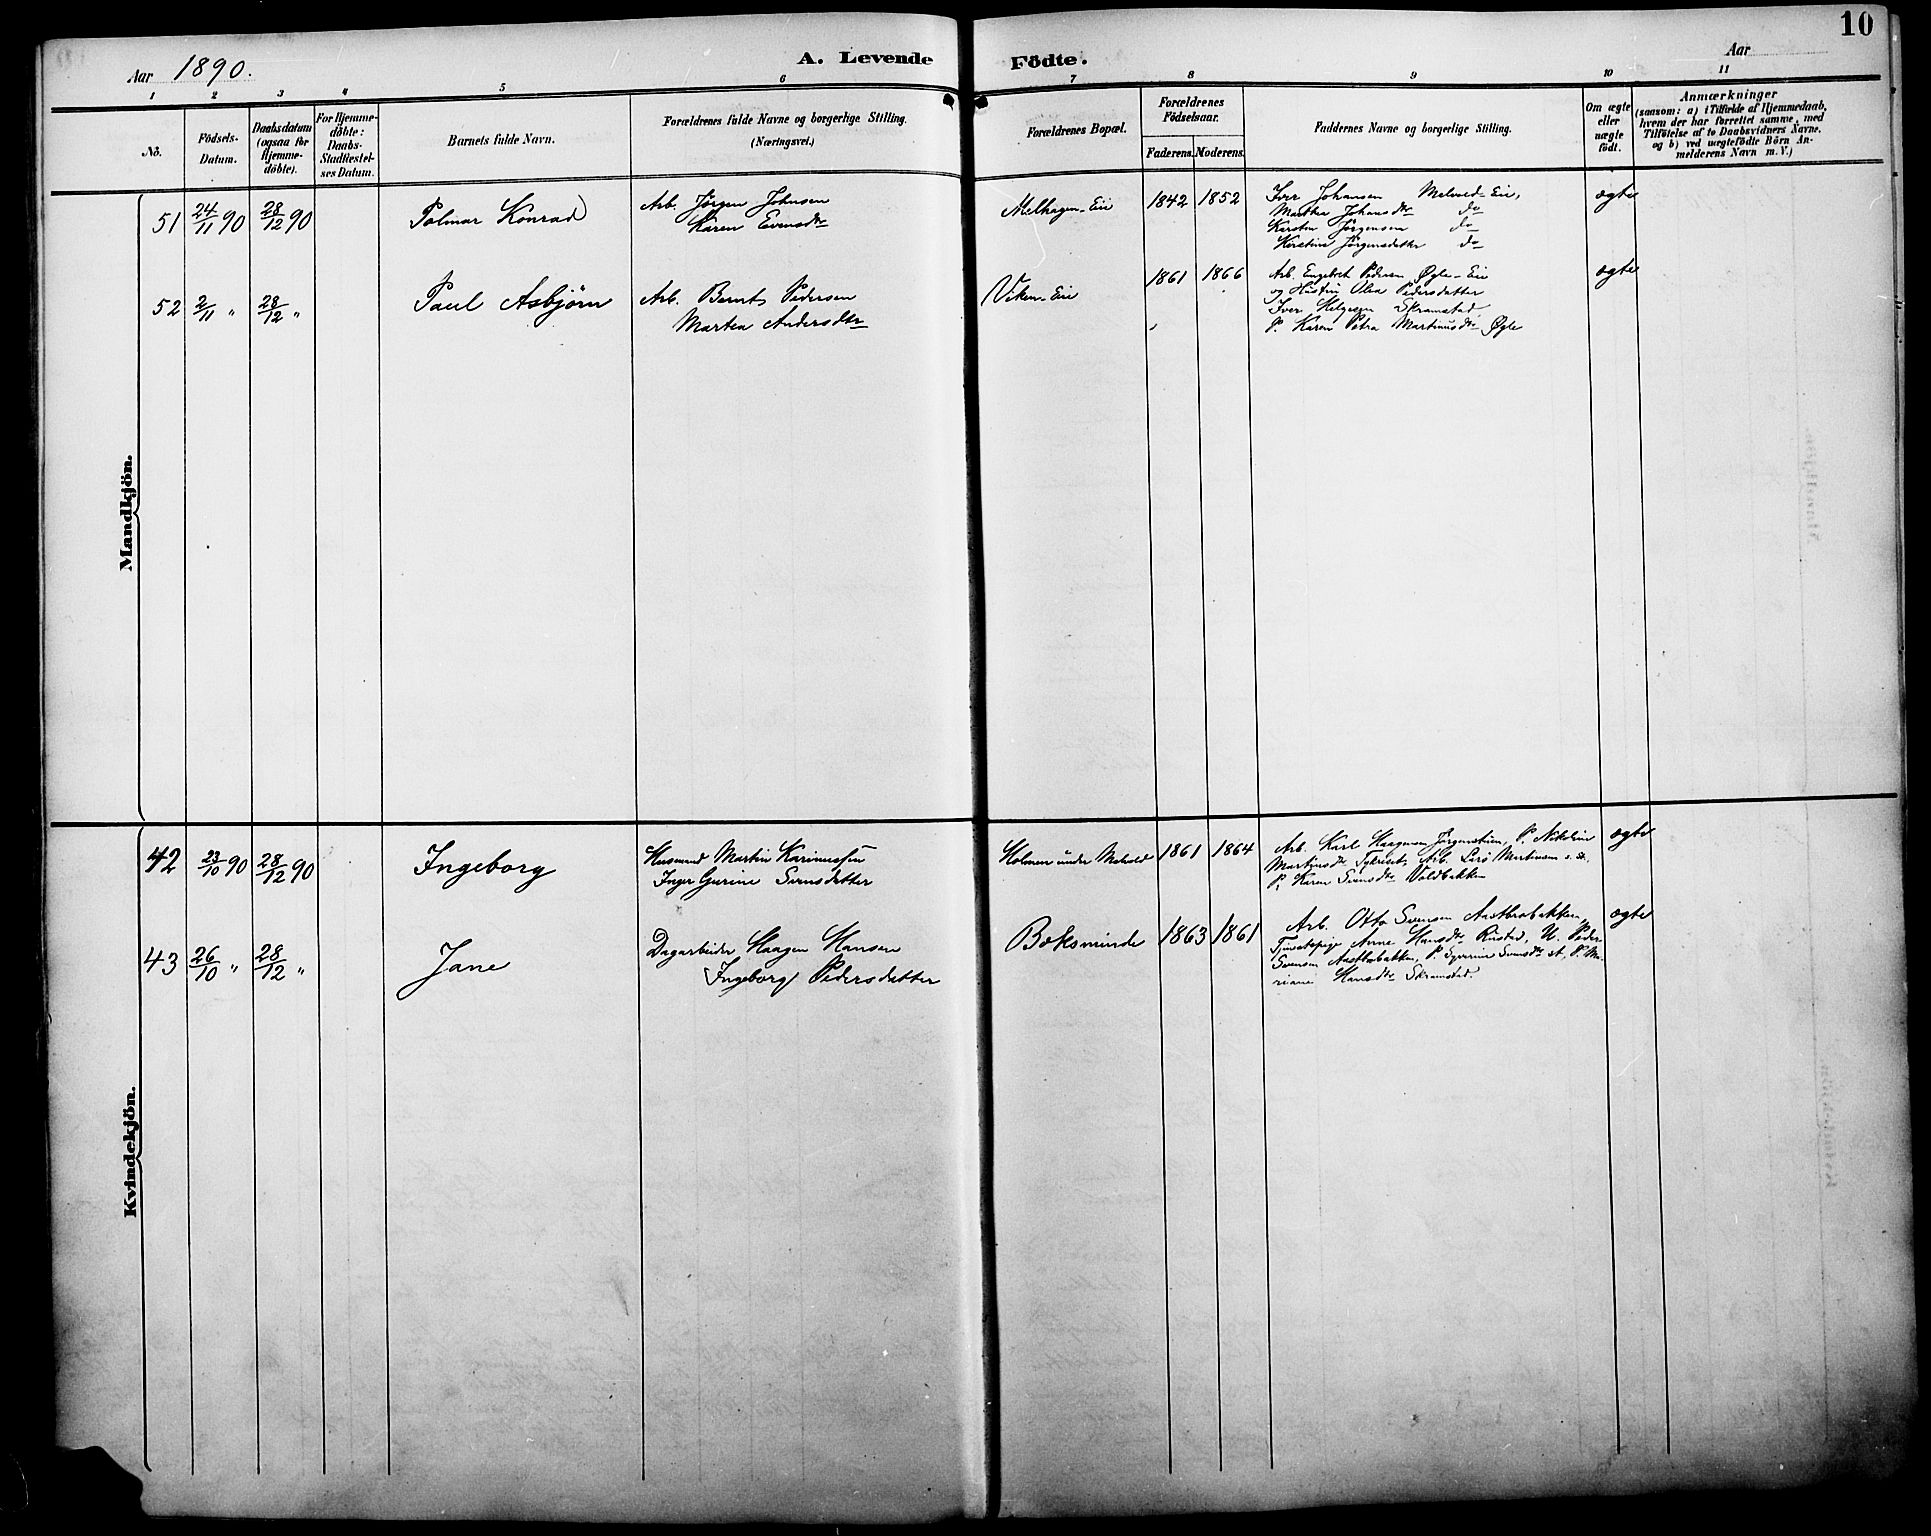 10
Aar 1890.
A. Levende Födte.
Aar
1 2 3 4 5 6 7 8 9 10 11
No.
Födsels-
Datum.
Daabsdatum
(ogsaa for
Hjemme-
döbte).
For Hjemme-
döbte:
Daabs-
Stadfæstel-
ses Datum.
Barnets fulde Navn.
Forældrenes fulde Navne og borgerlige Stilling.
(Næringsvei.)
Forældrenes Bopæl.
Forældrenes
Födselsaar.
Faderens. Moderens.
Faddernes Navne og borgerlige Stilling.
Om ægte
eller
uægte
födt.
Anmærkninger
(saasom: a) i Tilfælde af Hjemmedaab,
hvem der har forrettet samme, med
Tilföielse af to Daabsvidners Navne.
og b) ved uægtefödte Börn An-
melderens Navn m. V.)
Mandkjön.
51 24/11 90 28/12 90 Palmar Konrad
Arb. Jörgen Johnsen
Karen Evensdtr
Melhagen-Eie 1842 1852
Iver Johansen Melvold-Eie,
Martha Johansdtr do
Karsten Jörgensen do
Kirstine Jörgensdatter do
ægte
52 2/11 " 28/12 " Paul Asbjörn
Arb. Bernt Pedersen
Martea Andersdtr
Viken-Eie 1861 1866
Arb. Engebret Pedersen Øgle-Eie
og Hustru Olea Pedersdatter
Iver Helgesen Skramstad
P. Karen Petra Martinusdtr Øgle
ægte
Kvindekjön.
42 23/10 90 28/12 90 Ingeborg
Husmand Martin Karinussen
Inger Gurine Svensdatter
Holmen under Melvold 1861 1864
Arb. Karl Haagensen Jörgenstuen, P. Nikoline
Martinsdtr Arb. Lars Martinsen s. st.
P. Karen Svensdtr Voldbakken
ægte
43 26/10 " 28/12 " Jane
Dagarbeider Haagen Hansen
Ingeborg Pedersdatter
Bæksminde 1863 1861
Arb. Otto Svensen Aastbrobakken,
Tjenestepige Anne Hansdtr Rustad, U. Peder
Svensen Aastbrobakken, P. Syverine Svensdtr st, P. Ma-
riane Hansdtr Skramstad.
ægte